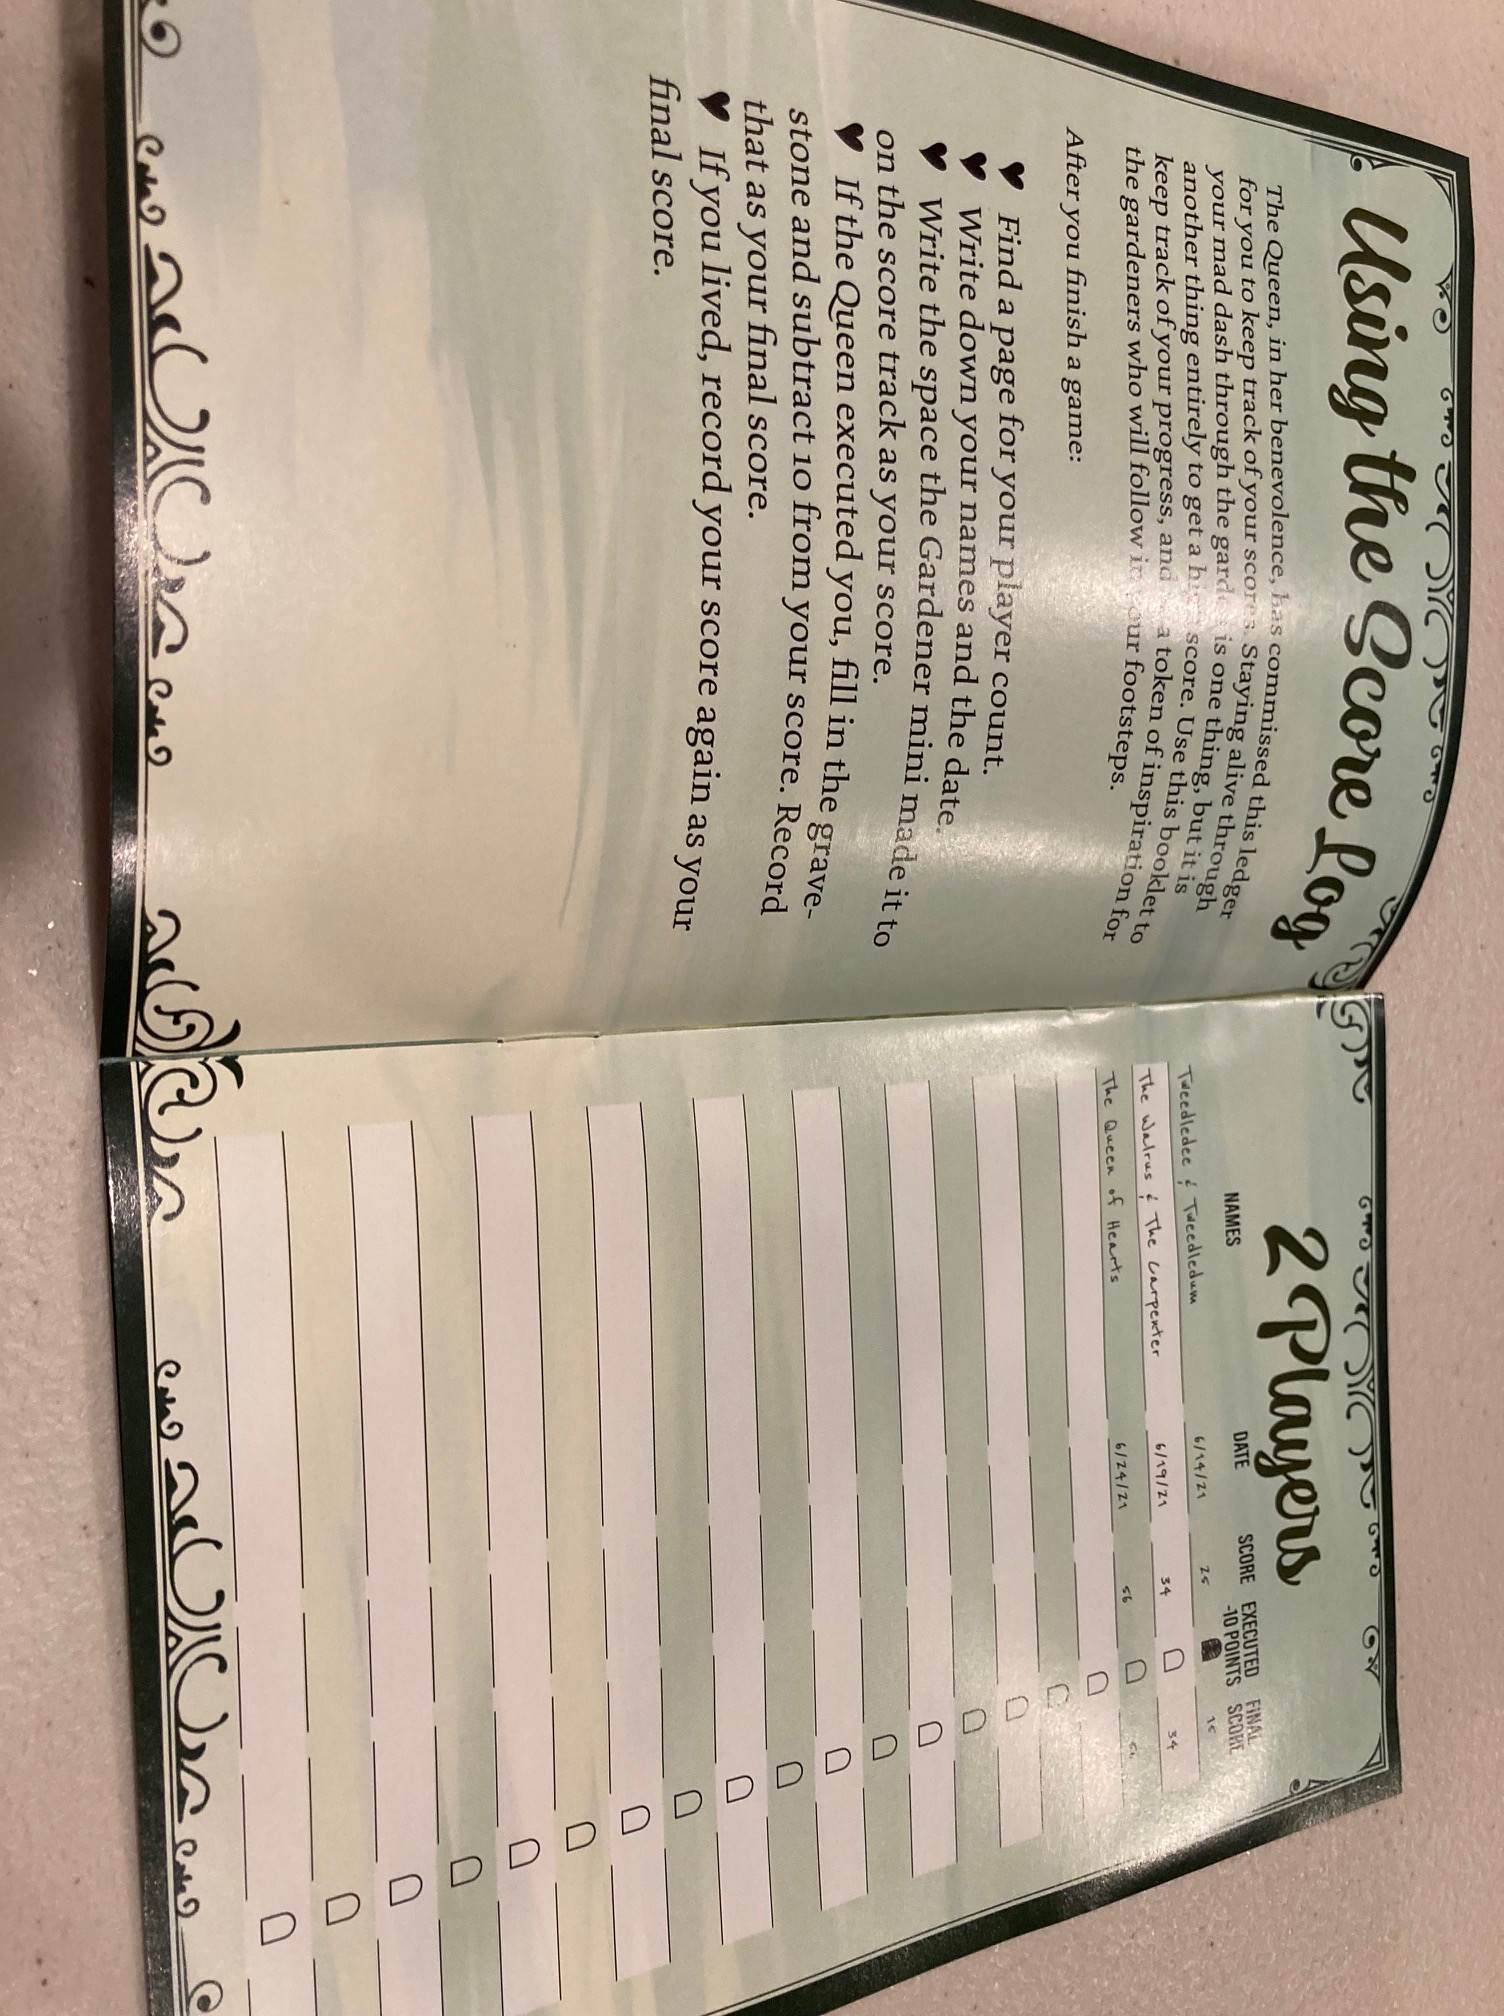 Using the Score Log
The Queen, in her benevolence, has commissed this ledger
for you to keep track of your scores. Staying alive through
your mad dash through the garden is one thing, but it is
another thing entirely to get a score. Use this booklet to
keep track of your progress, and a token of inspiration for
the gardeners who will follow in your footsteps.
After you finish a game:
♥ Find a page for your player count.
♥ Write down your names and the date.
♥ Write the space the Gardener mini made it to
on the score track as your score.
♥ If the Queen executed you, fill in the grave-
stone and subtract 10 from your score. Record
that as your final score.
♥ If you lived, record your score again as your
final score.
2 Players
NAMES DATE SCORE EXECUTED -10 POINTS FINAL SCORE
Tweedledee & Tweedledum 6/14/21 25 15
The Walrus & The Carpenter 6/19/21 34 34
The Queen of Hearts 6/24/21 56